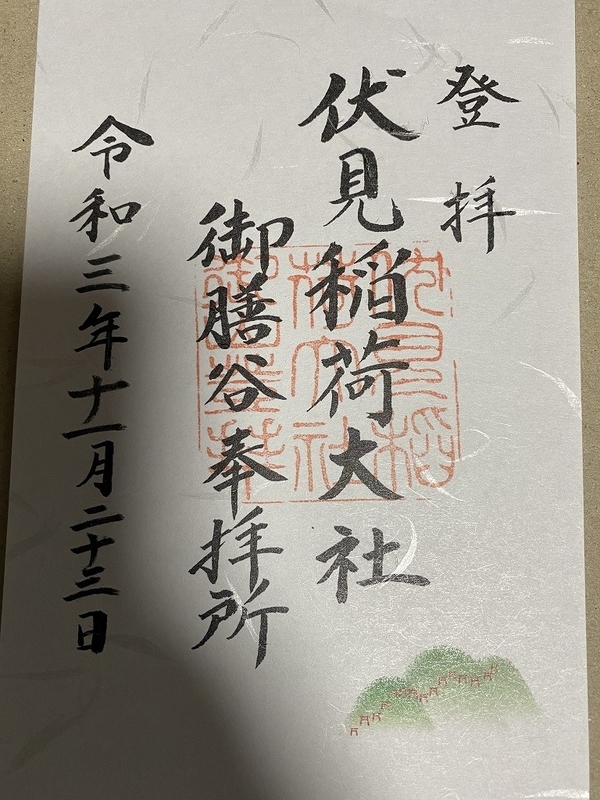 登拝
伏見稲荷大社
御膳谷奉拝所
令和三年十一月二十三日